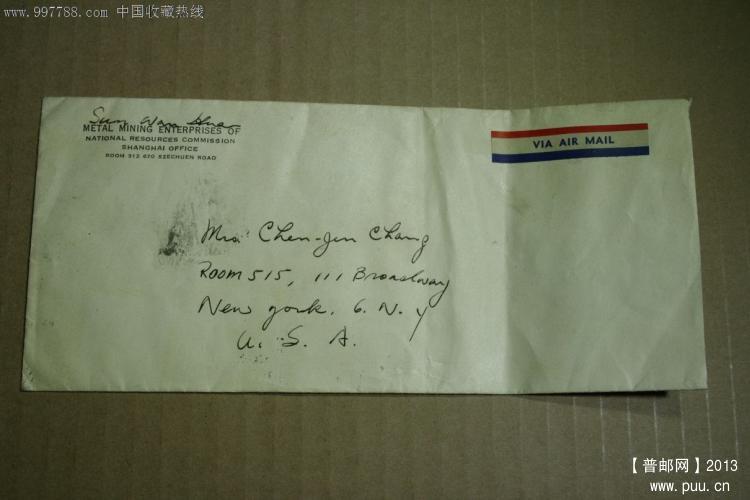 www.997788.com 中国收藏热线
Sun Wan Hua
METAL MINING ENTERPRISES OF
NATIONAL RESOURCES COMMISSION
SHANGHAI OFFICE
ROOM 312 670 SZECHUEN ROAD
VIA AIR MAIL
Mrs Chen-Jen Chang
Room 515, 111 Broadway
New york. 6. N. y
U. S. A.
【普邮网】2013
www.puu.cn